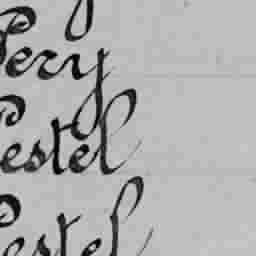 Pery
Pestel
Pestel